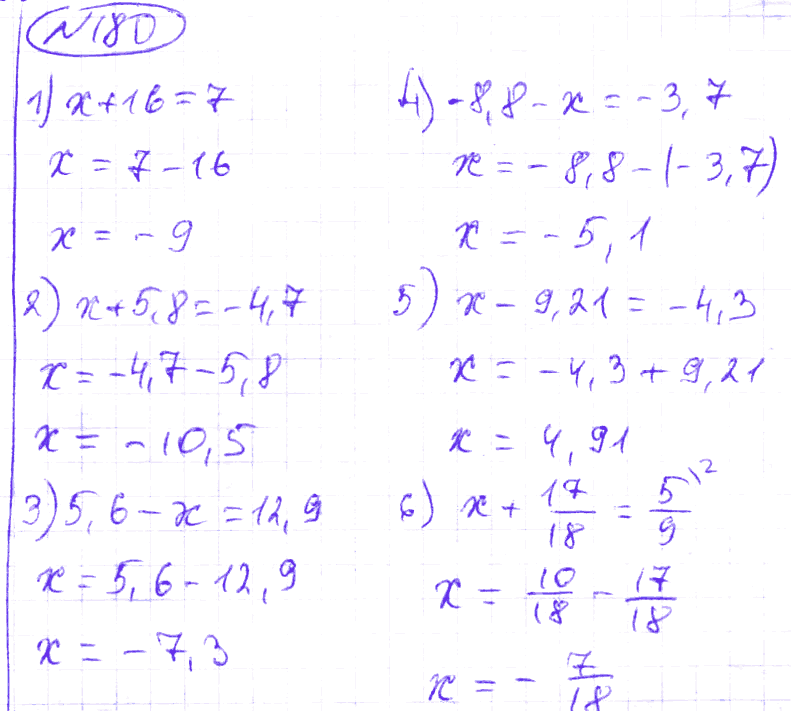 №180
1) x+16=7
x = 7-16
x = -9
2) x+5,8=-4,7
x = -4,7-5,8
x = -10,5
3) 5,6-x=12,9
x = 5,6-12,9
x = -7,3
4) -8,8-x=-3,7
x = -8,8-(-3,7)
x = -5,1
5) x-9,21=-4,3
x = -4,3+9,21
x = 4,91
6) x+17/18=5/9\2
x = 10/18-17/18
x = -7/18